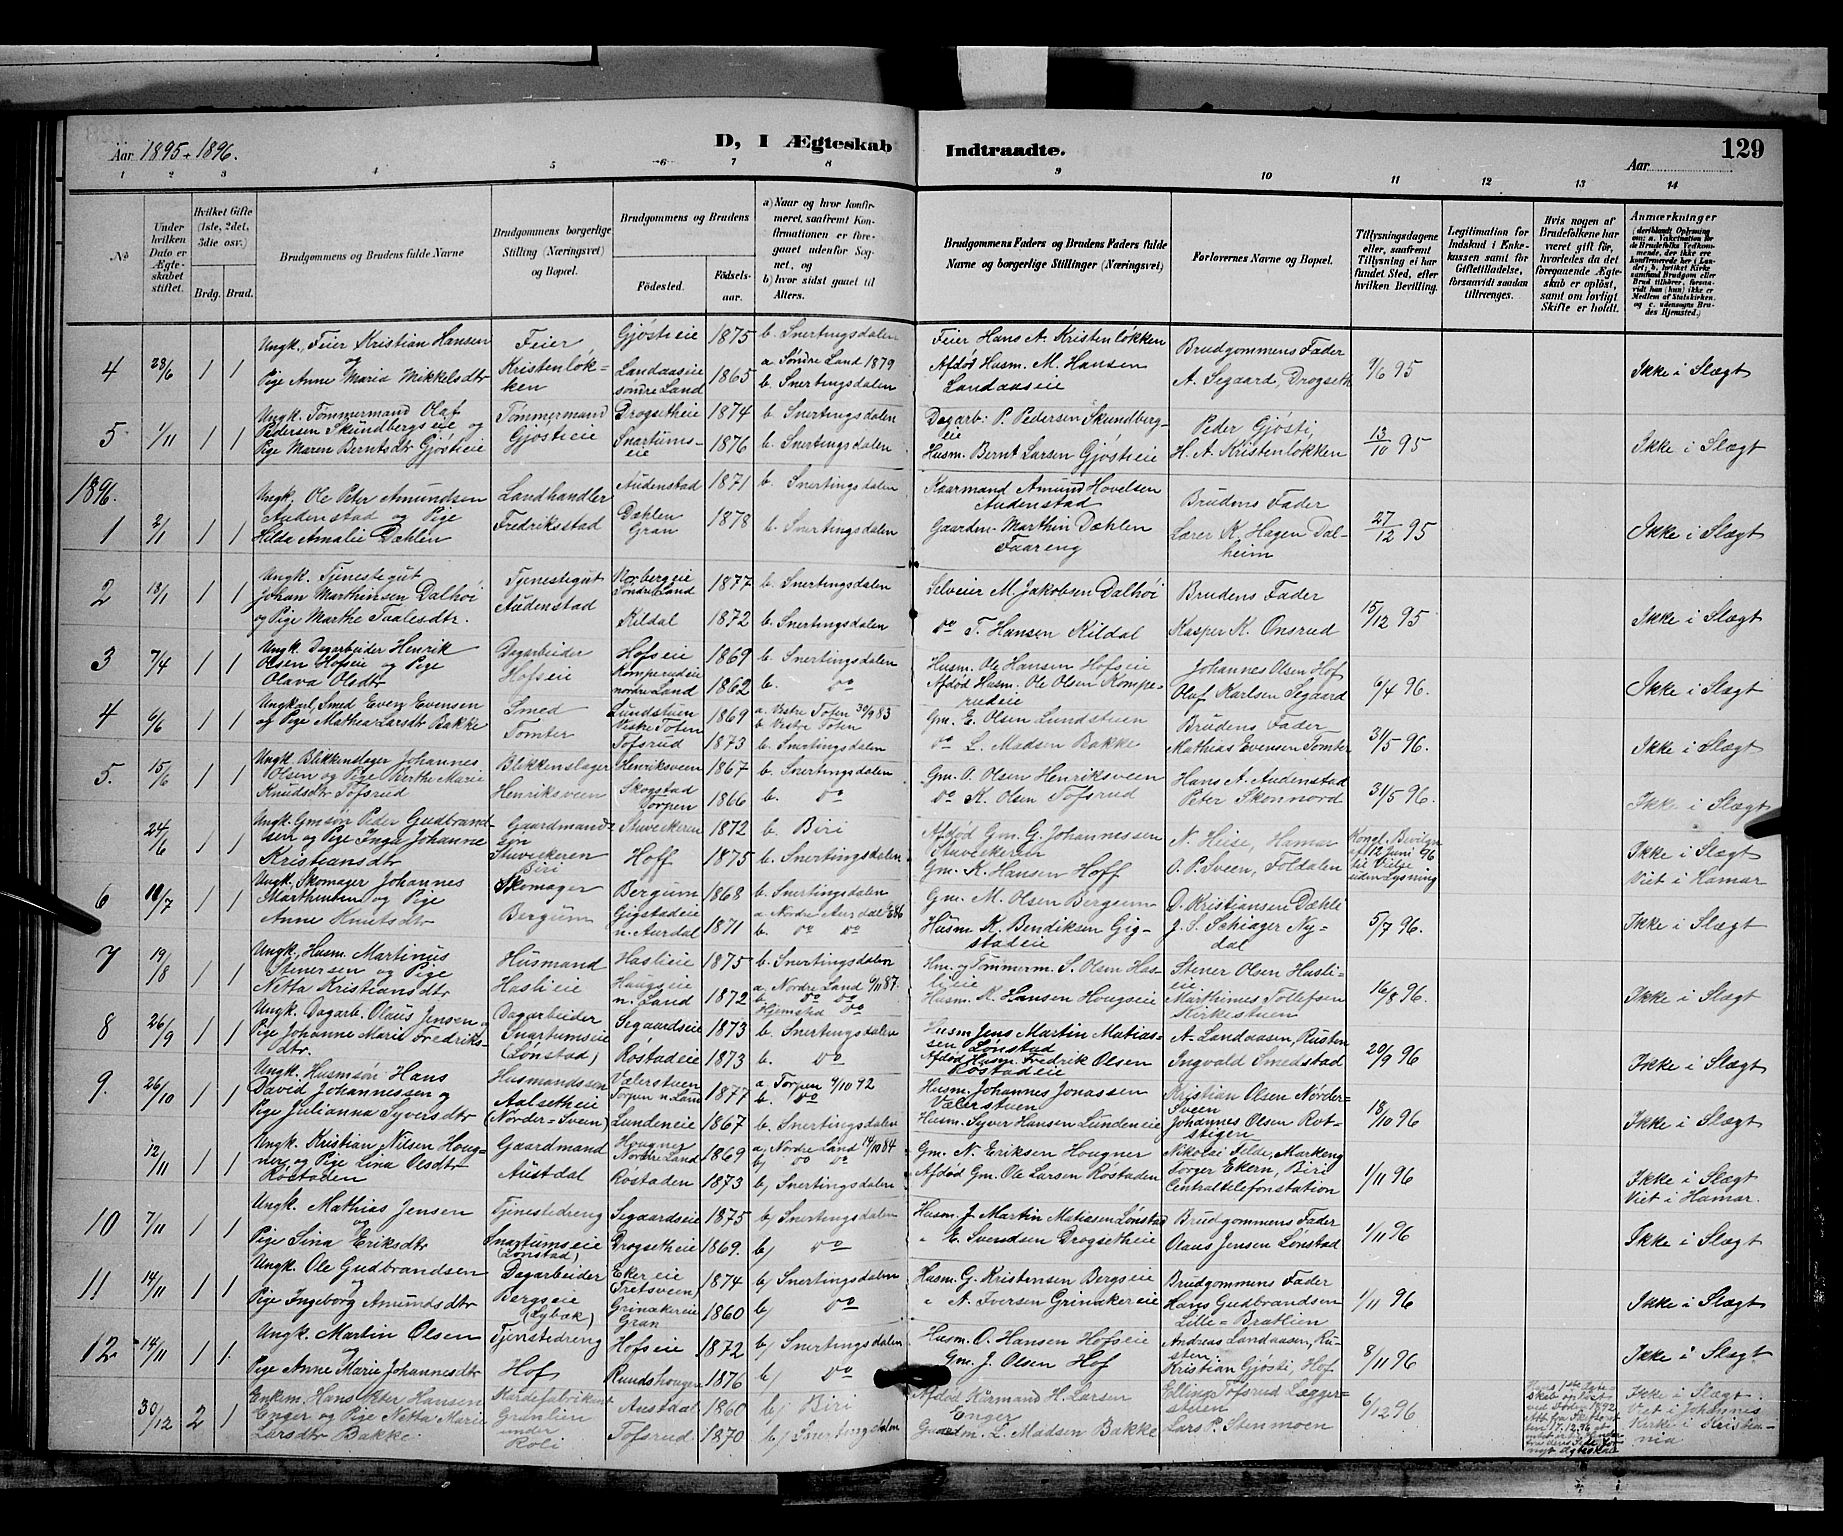 Aar 1895 + 1896.
D, I Ægteskab Indtraadte.
Aar
129
1 2 3 4 5 6 7 8 9 10 11 12 13 14
No
Under hvilken Dato er Ægteskabet stiftet.
Hvilket Gifte (1ste, 2det, 3die osv.)
Brdg. Brud.
Brudgommens og Brudens fulde Navne
Brudgommens borgerlige Stilling (Næringsvei) og Bopæl.
Brudgommens og Brudens
Födested.
Födsels-aar.
a) Naar og hvor konfirmeret, saafremt Konfirmationen er foregaaet udenfor Sognet, og
b) hvor sidst gaaet til Alters.
Brudgommens Faders og Brudens Faders fulde Navne og borgerlige Stillinger (Næringsvei)
Forlovernes Navne og Bopæl.
Tillysningsdagene eller, saafremt Tillysning ei har fundet Sted, efter hvilken Bevilling.
Legitimation for Indskud i Enkekassen samt for Giftetilladelse, forsaavidt saadan tiltrænges.
Hvis nogen af Brudefolkene har været gift för, hvorledes da det foregaaende Ægteskab er oplöst, samt om lovligt Skifte er holdt.
Anmærkninger
4 28/6 1 1 Ungk., Feier Kristian Hansen og Pige Anne Maria Mikkelsdtr
Feier, Kristenløkken
Gjøstieie 1875 b. Snertingsdalen
Landaaseie søndre Land 1865 a Søndre Land 1879 b. Snertingsdalen
Feier Hans A. Kristenløkken
Afdød Husm. M. Hansen Landaaseie
Brudgommens Fader
A. Segaard, Drogseth
9/6 95
Ikke i Slægt
5 1/11 1 1 Ungk. Tømmermand Olaf Pedersen Skundbergseie og Pige Maren Berntsdtr Gjøstieie
Tømmermand Gjøstieie
Drogsetheie 1874 b. Snertingsdalen
Snartumseie 1876 b. Snertingsdalen
Dagarb: P. Pedersen Skundbergeie
Husm. Bernt Larsen Gjøstieie
Peder Gjøsti,
H. A. Kristenløkken
13/10 95
Ikke i Slægt
1896.
1 2/1 1 1 Ungk. Ole Peter Amundsen Audenstad og Pige Hilda Amalie Dæhlen
Landhandler Fredrikestad
Audenstad 1871 b. Snertingsdalen
Dæhlen Gran 1878 b. Snertingsdalen
Kaarmand Amund Hovelsen Audenstad
Gaardm. Marthin Dæhlen Faareng
Brudens Fader
Lærer K. Hagen Dalheim
27/12 95
Ikke i Slægt
2 18/1 1 1 Ungk. Tjenestegut Johan Marthinsen Dalhøi og Pige Marthe Taalesdtr.
Tjenestegut Audenstad
Norbergeie Søndre Land 1877 b. Snertingsdalen
Kildal 1872 b. Snertingsdalen
Selveier M. Jakobsen Dalhøi
do T. Hansen Kildal
Brudens Fader
Kasper K. Onsrud
15/12 95
Ikke i Slægt
3 7/4 1 1 Ungk. Dagarbeider Henrik Olsen Hofseie og Pige Olava Olsdtr
Dagarbeider Hofseie
Hofseie 1869 b. Snertingsdalen
Komperudeie nordre Land 1862 b. do
Husm. Ole Hansen Hofseie
Afdød Husm. Ole Olsen Komperudeie
Johannes Olsen Hof
Olaf Karlsen Segaard
6/4 96.
Ikke i Slægt
4 6/6 1 1 Ungkarl, Smed Even Evensen og Pige Mathea Larsdtr Bakke
Smed Tomter
Lundstuen Vestre Toten 1869 a. Vestre Toten 30/9 83 b. Vestre Toten
Tofsrud 1873 b. Snertingsdalen
Gm. E. Olsen Lundstuen
do L. Madsen Bakke
Brudens Fader
Mathias Evensen Tomter
31/5 96.
Ikke i Slægt
5. 15/6 1 1 Ungk. Blikkenslager Johannes Olsen og Pige Berthe Marie Knudsdtr Tofsrud
Blikkenslager Henriksveen
Henriksveen 1867 b. Snertingsdalen
Skogstad Torpen 1866 b. do
Gm. O. Olsen Henriksveen
do K. Olsen Tofsrud
Hans A. Audenstad
Peter Skonnord
31/5 96.
Ikke i Slægt
24/6 1 1 Ungk. Gmsøn Peder Gudbrandsen og Pige Inga Johanne Kristiansdtr
Gaardmandssøn Stuvekeren Biri
Stuvekeren 1872 b. Biri
Hoff 1875 b. Snertingsdalen
Afdød Gm. G. Johannessen Stuvekeren
Gm. K. Hansen Hoff
N. Heise, Hamar
O. P. Sveen, Foldalen
Kongl. Bevilgn af 12 Juni 96 til Vielse uden Lysning
Ikke i Slægt
Viet i Hamar
6 10/7 1 1 Ungk. Skomager Johannes Marthinsen og Pige Anne Knutsdtr
Skomager Bergum
Bergum 1868 b. Snertingsdalen
Gigstadeie n. Aurdal 1871 a Nordre Aurdal b. do do
Gm. M. Olsen Bergum
Husm K. Bendiksen Gigstadeie
D. Kristiansen Dæhli
J. S. Schiager Nydal
5/7 96.
Ikke i Slægt
7 19/8 1 1 Ungk., Husm. Martinus Stenersen og Pige Netta Kristiansdtr
Husmand Haslieie
Haslieie 1875 b. Snertingsdalen
Haugseie n. Land 1872 a. Nordre Land 6/11 87. b do do
Hjemsted do
Hm. og Tømmerm. S. Olsen Haslieie
Husm. K. Hansen Hougseie
Stener Olsen Haslieie
Marthinus Tollefsen Kirkestuen
16/8 96.
Ikke i Slægt
8 26/9 1 1 Ungk. Dagarb. Olaus Jensen, Pige Johanne Marie Fredriksdtr.
Dagarbeider Snartumseie (Lønstad)
Segaardseie 1873 b. Snertingsdalen
Røstadeie 1873 b. do
Husm Jens Martin Matiassen Lønstad
Afdød Husm. Fredrik Olsen Røstadeie
A. Landaasen, Rusten
Ingvald Smedstad
20/9 96
Ikke i Slægt
9. 26/10 1 1 Ungk. Husmsøn Hans David Johannessen og Pige Julianna Syversdtr
Husmandssøn Aalsetheie (Nørder-Sveen)
Vælerstuen Torpen n Land 1877 a Torpen 9/10 92 b. do
Lundeneie 1867 b. Snertingsdalen
Husm. Johannes Jonassen Vælerstuen
Husm. Syver Hansen Lundeneie
Kristian Olsen Nørder-Sveen
Johannes Olsen Rotstigen
18/10 96
Ikke i Slægt
12/11 1 1 Ungk. Kristian Nilsen Hougner og Pige Lina Olsdtr Røstaden
Gaardmand Austdal
Hougner Nordre Land 1869 a) Nordre Land 14/10 84 b) do do
Røstaden 1873 b) Snertingsdalen
Gm. N. Eriksen Hougner
Afdød Gm. Ole Larsen Røstaden
Nikolai Selde, Markeng
Torger Ekern, Biri Centraltelefonstation
1/11 96
Ikke i Slægt
Viet i Hamar.
10 7/11 1 1 Ungk. Mathias Jensen og Pige Sina Eriksdtr
Tjenestedreng Snartumseie (Lønstad)
Segaardseie 1875 b) Snertingsdalen
Drogsetheie 1869. b) do
Husm. J. Martin Matiasen Lønstad
" E. Svendsen Drogsetheie
Brudgommens Fader
Olaus Jensen Lønstad
1/11 96
Ikke i Slægt
11 14/11 1 1 Ungk. Ole Gudbrandsen og Pige Ingeborg Amundsdtr
Dagarbeider Bergseie (Lybæk)
Ekereie Tretsveen) 1874 b) Snertingsdalen
Grinakereie Gran 1860 b) do
Husm. G. Kristensen Bergseie
" A. Iversen Grinakereie
Brudgommens Fader
Hans Gudbrandsen Lille-Bratlien
1/11 96
Ikke i Slægt
12 14/11 1 1. Ungk. Martin Olsen og Pige Anne Marie Johannesdtr
Tjenstedreng Hof
Hofseie 1872 b) Snertingsdalen
Rundshougen 1876 b) do
Husm. O. Hansen Hofseie
Gm. J. Olsen Hof
Andreas Landaasen, Rusten
Kristian Gjøsti, Hof
8/11 96
Ikke i Slægt
30/12 2 1 Enkem. Hans Peter Hansen Enger og Pige Netta Marie Larsdtr Bakke.
Granlien under Roli
Austdal 1860 b) Biri
Tofsrud 1870 b) Snertingsdalen
Afdød Kirmand H. Larsen Enger
Gaardm. L. Madsen Bakke
Elling Tofsrud Læggerstuen
Lars P. Stenmoen
6/12 96
Ikke i Slægt.
Viet i Johannes Kirke i Kristiania